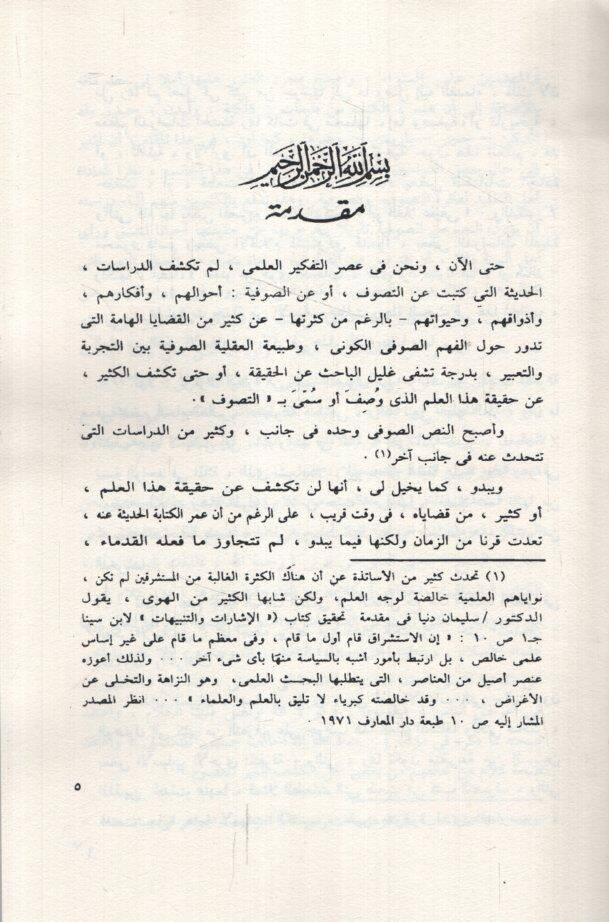 بسم الله الرحمن الرحيم
مقدمة
حتى الآن ، ونحن فى عصر التفكير العلمى ، لم تكشف الدراسات ،
الحديثة التي كتبت عن التصوف ، أو عن الصوفية : أحوالهم ، وأفكارهم ،
وأذواقهم ، وحيواتهم - بالرغم من كثرتها - عن كثير من القضايا الهامة التى
تدور حول الفهم الصوفى الكونى ، وطبيعة العقلية الصوفية بين التجربة
والتعبير ، بدرجة تشفى غليل الباحث عن الحقيقة ، أو حتى تكشف الكثير ،
عن حقيقة هذا العلم الذى وُصفَ أو سُمّىَ بـ « التصوف » .
وأصبح النص الصوفى وحده فى جانب ، وكثير من الدراسات التى
تتحدث عنه فى جانب آخر(١) .
ويبدو ، كما يخيل لى ، أنها لن تكشف عن حقيقة هذا العلم ،
أو كثير ، من قضاياه ، فى وقت قريب ، على الرغم من أن عمر الكتابة الحديثة عنه ،
تعدت قرنا من الزمان ولكنها فيما يبدو ، لم تتجاوز ما فعله القدماء ،
(١) تحدث كثير من الأساتذة عن أن هناك الكثرة الغالبة من المستشرقين لم تكن ،
نواياهم العلمية خالصة لوجه العلم، ولكن شابها الكثير من الهوى ، يقول
الدكتور /سليمان دنيا فى مقدمة تحقيق كتاب (« الإشارات والتنبيهات » لابن سينا
جـ١ ص ١٠ : « إن الاستشراق قام أول ما قام ، وفى معظم ما قام على غير إساس
علمى خالص ، بل ارتبط بأمور أشبه بالسياسة منها بأى شىء آخر ٠٠٠ ولذلك أعوزه
عنصر أصيل من العناصر ، التى يتطلبها البحث العلمى، وهو النزاهة والتخلى عن
الأغراض ، ٠٠٠ وقد خالصته كبرياء لا تليق بالعلم والعلماء » ٠٠٠ انظر المصدر
المشار إليه ص ١٠ طبعة دار المعارف ١٩٧١ ٠
٥